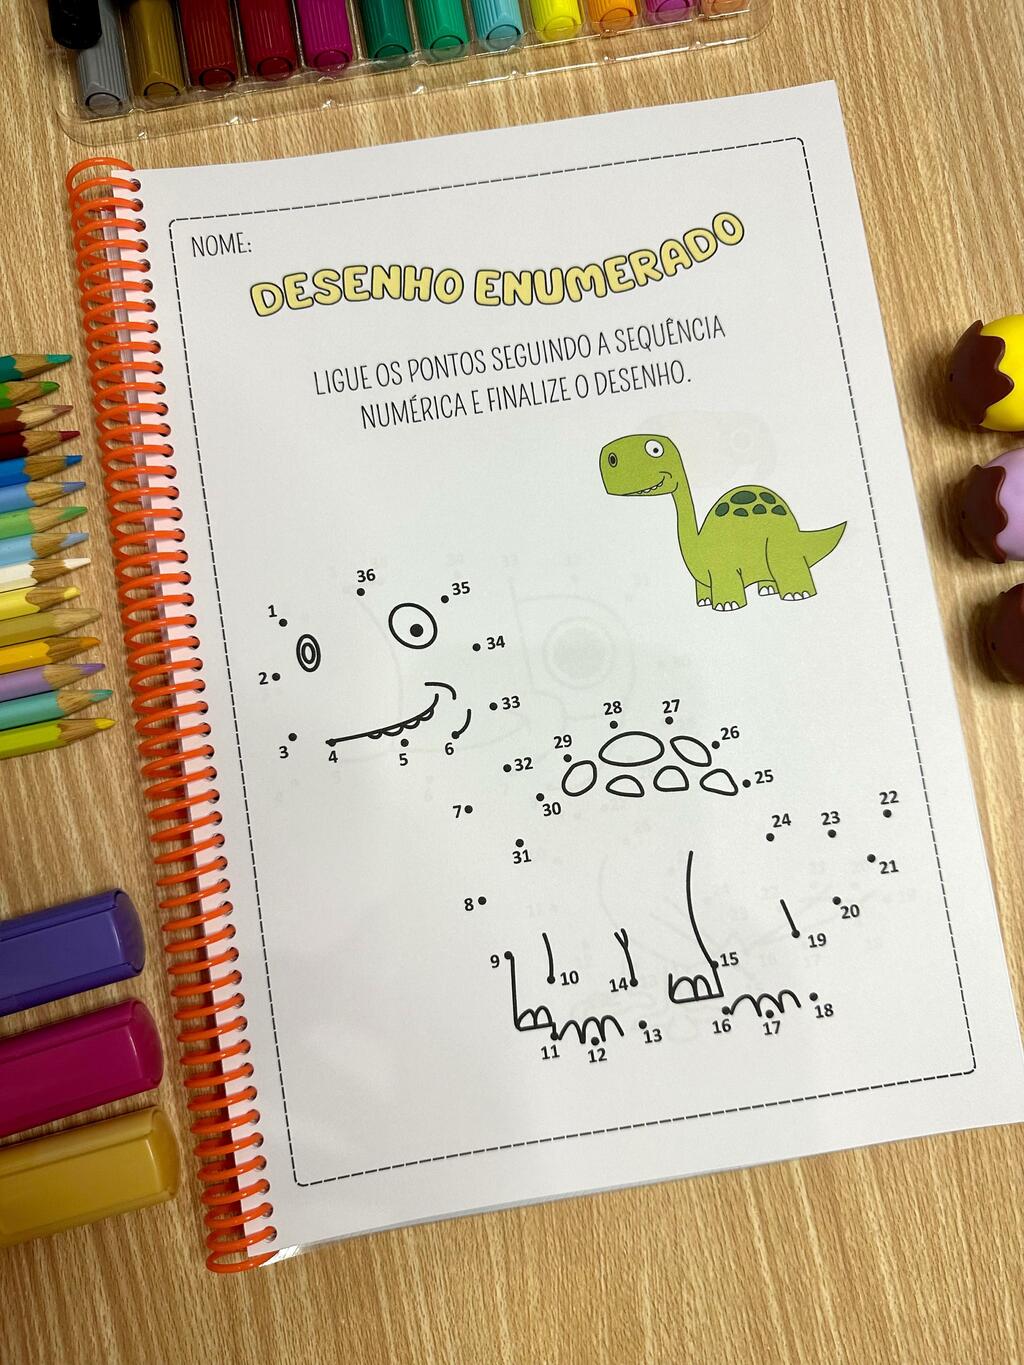 NOME:
DESENHO ENUMERADO
LIGUE OS PONTOS SEGUINDO A SEQUÊNCIA
NUMÉRICA E FINALIZE O DESENHO.
36
35
1
34
2
33
28
27
3
4
5
6
29
26
32
25
7
30
22
24
23
31
21
8
20
19
9
10
14
15
13
16
17
18
11
12